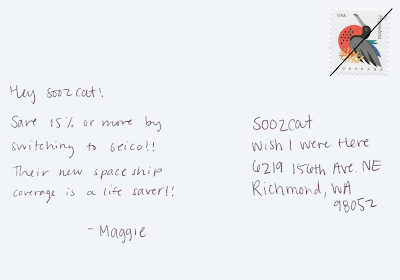 Hey sooz cat!
Save 15% or more by
switching to Geico!!
Their new spaceship
coverage is a life saver!!
- Maggie
USA
FOREVER
Sooz cat
Wish I Were Here
6219 156th Ave. NE
Richmond, WA
98052